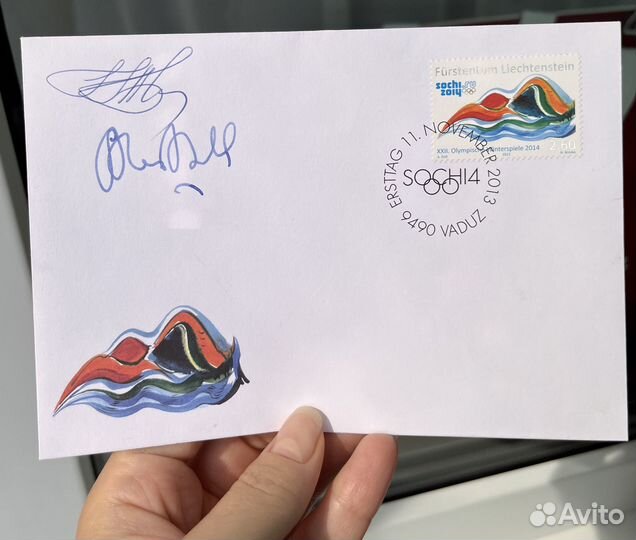 Fürstentum Liechtenstein
sochi.ru
2014
XXII. Olympische Winterspiele 2014
2.60
ERSTTAG 11. NOVEMBER 2013
SOCHI4
9490 VADUZ
Avito